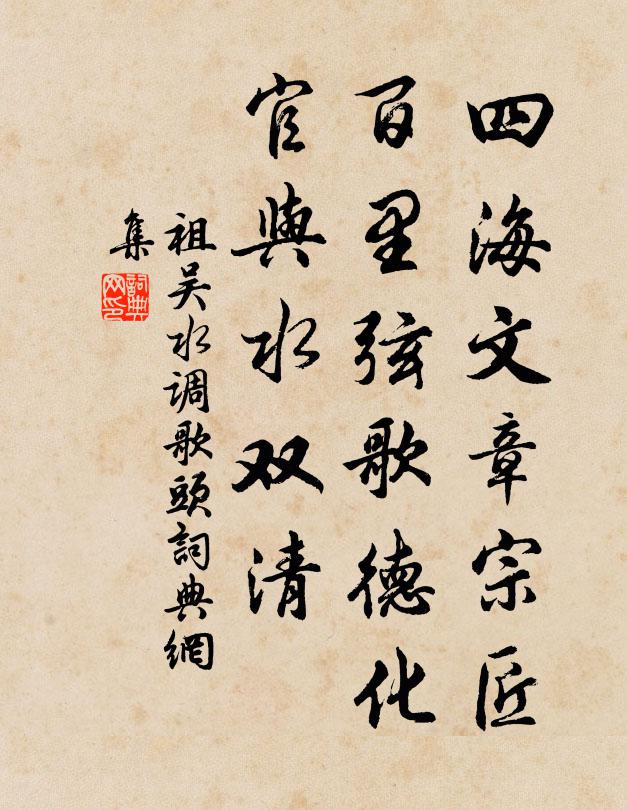 四海文章宗匠
百里弦歌德化
官與水双清
祖吴水调歌頭詞典網
集
詞典
网印